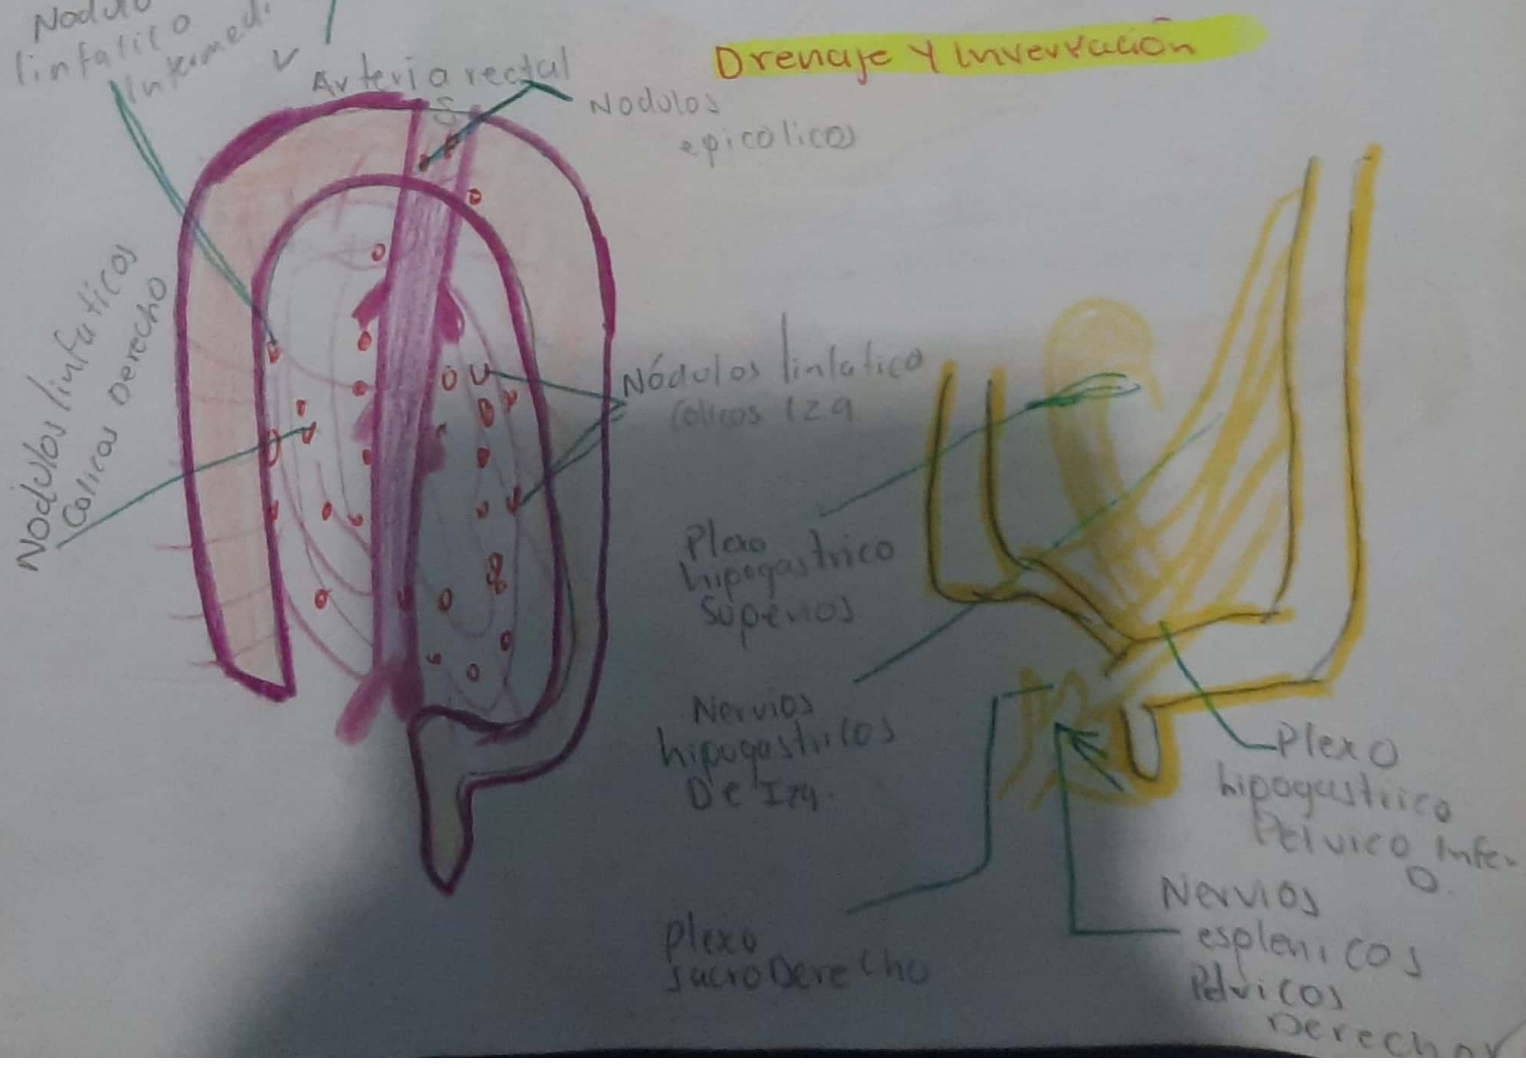 Nodulo
linfatico
Intermedi
Arteria rectal
S
Drenaje y Invervación
Nodulos
epicolicos
Nodulos linfaticos
Colicos Derecho
Nódulos linfatico
Colicos Izq
Plexo
hipogastrico
Superios
Nervios
hipogastricos
De Izq.
Plexo
hipogastrico
Pelvico Infe-
o.
Plexo
sacro Derecho
Nervios
esplenicos
Pelvicos
Derechos